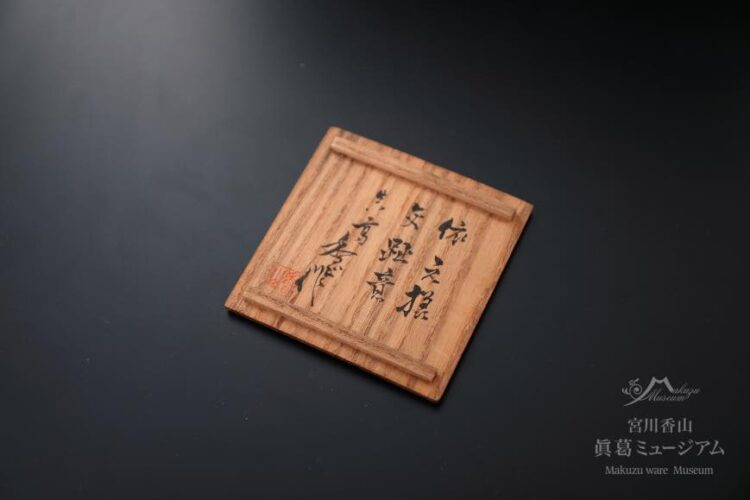 依元様
交趾意
Makuzu
Museum
宮川香山
眞葛ミュージアム
Makuzu ware Museum